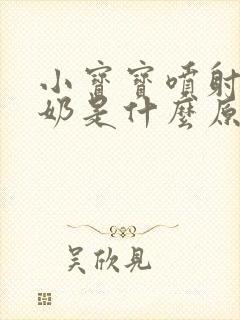 小寶寶噴射
奶是什麼原
吴欣見